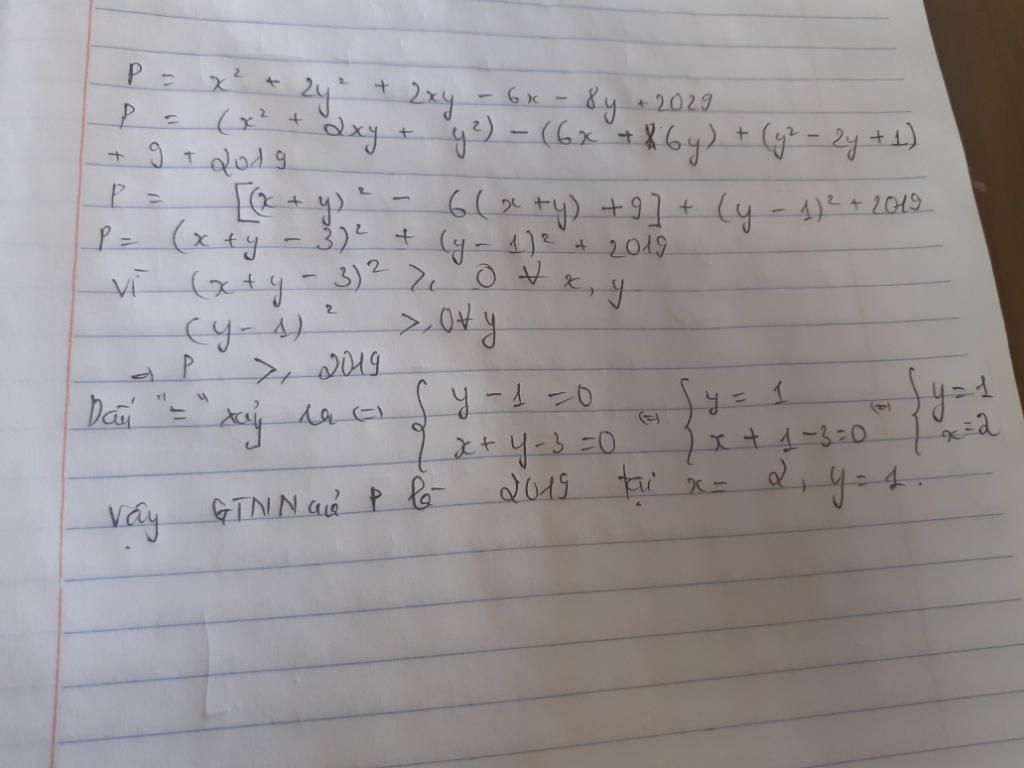 P = x² + 2y² + 2xy - 6x - 8y + 2029
P = (x² + 2xy + y²) - (6x + 6y) + (y² - 2y + 1)
+ 9 + 2019
P = [(x + y)² - 6(x + y) + 9] + (y - 1)² + 2019
P = (x + y - 3)² + (y - 1)² + 2019
Vì (x + y - 3)² ≥ 0 ∀ x, y
(y - 1)² ≥ 0 ∀ y
→ P ≥ 2019
Dấu "=" xảy ra (=) { y - 1 = 0 (=) { y = 1 (=) { y = 1
x + y - 3 = 0 x + 1 - 3 = 0 x = 2
Vậy GTNN của P là 2019 tại x = 2, y = 1.